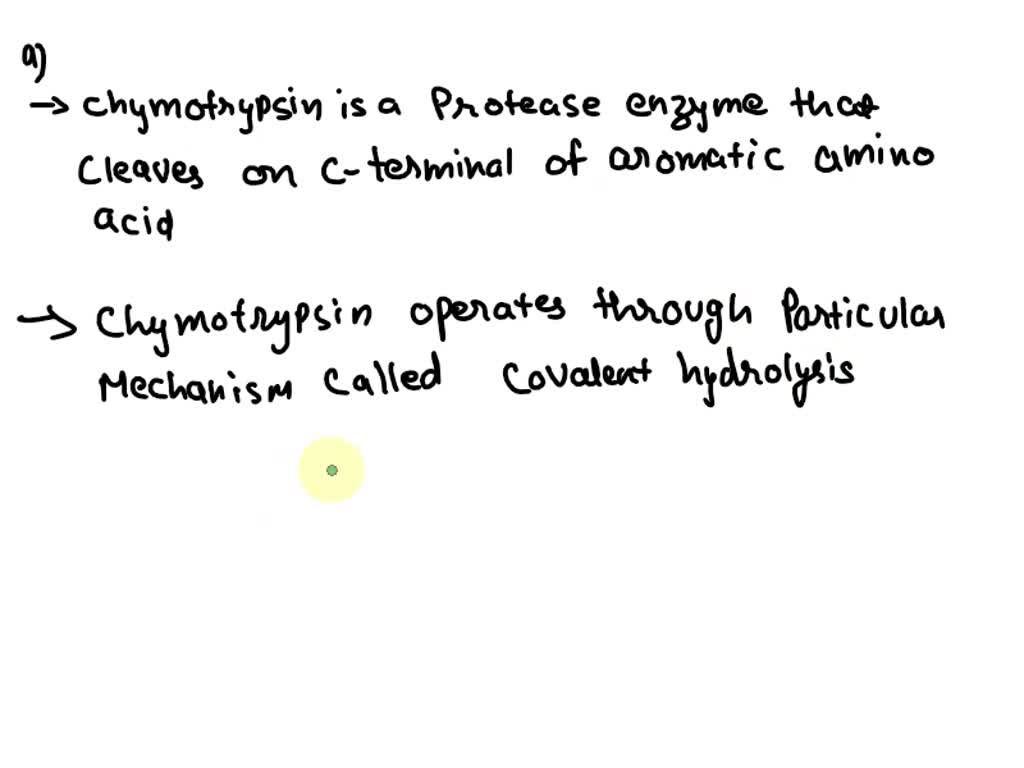 a)
→ chymotrypsin is a Protease enzyme that
cleaves on C-terminal of aromatic amino
acid
→ Chymotrypsin operates through Particular
Mechanism called covalent hydrolysis